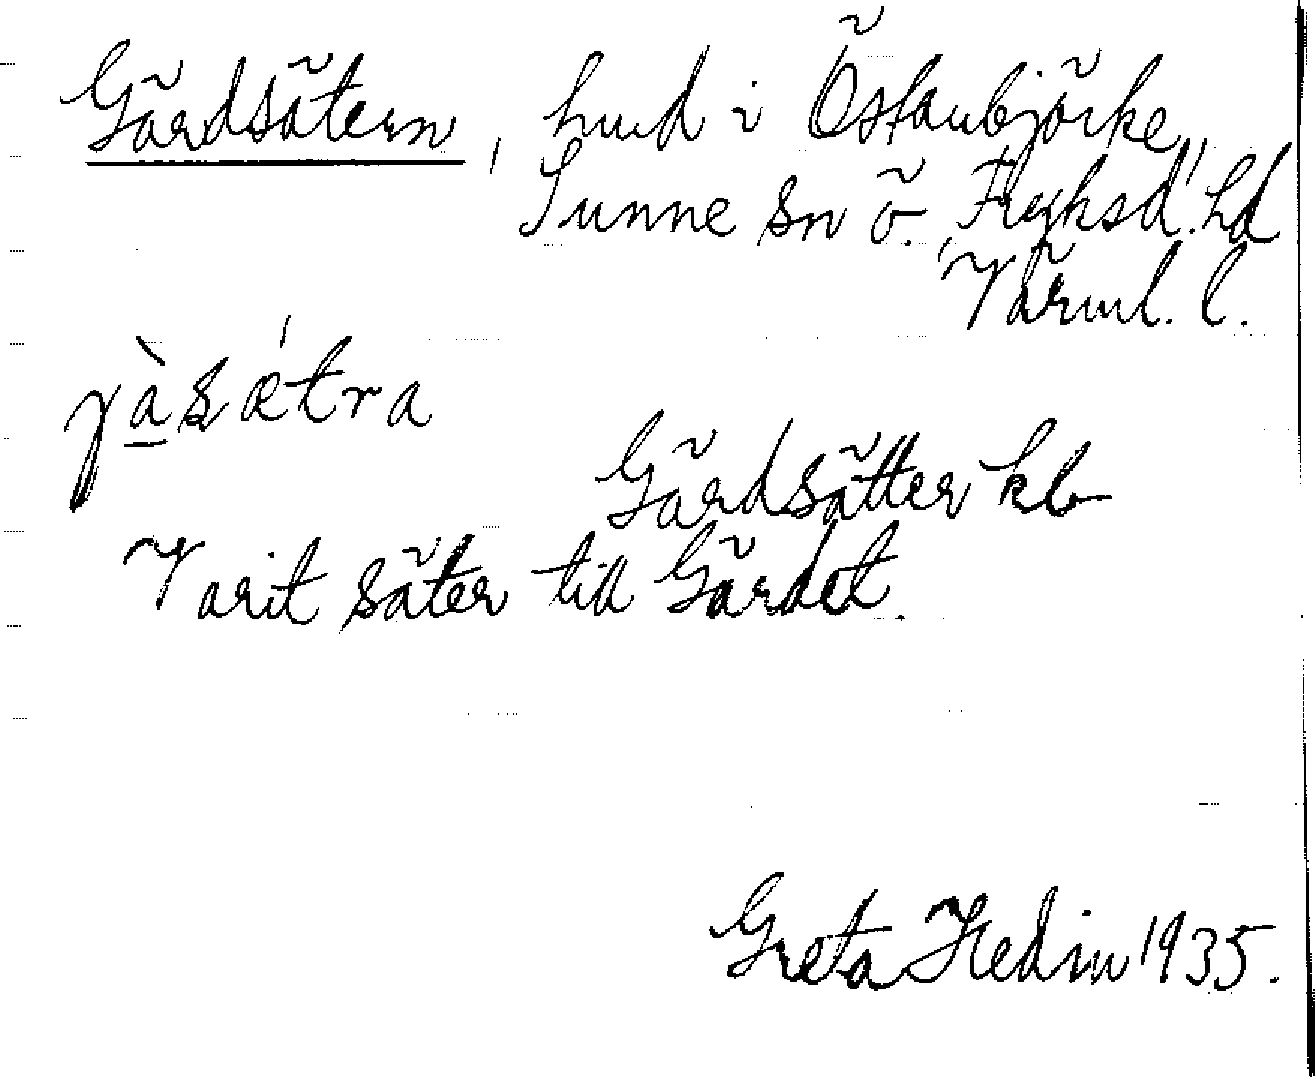 Gärdsätern, hmd i Östanbjörke,
Sunne sn Ö. Fryksd. hd
Värml. l.
jàsǽtra
Gärdsätter kb
Varit säter till Gärdet.
Greta Hedin 1935.